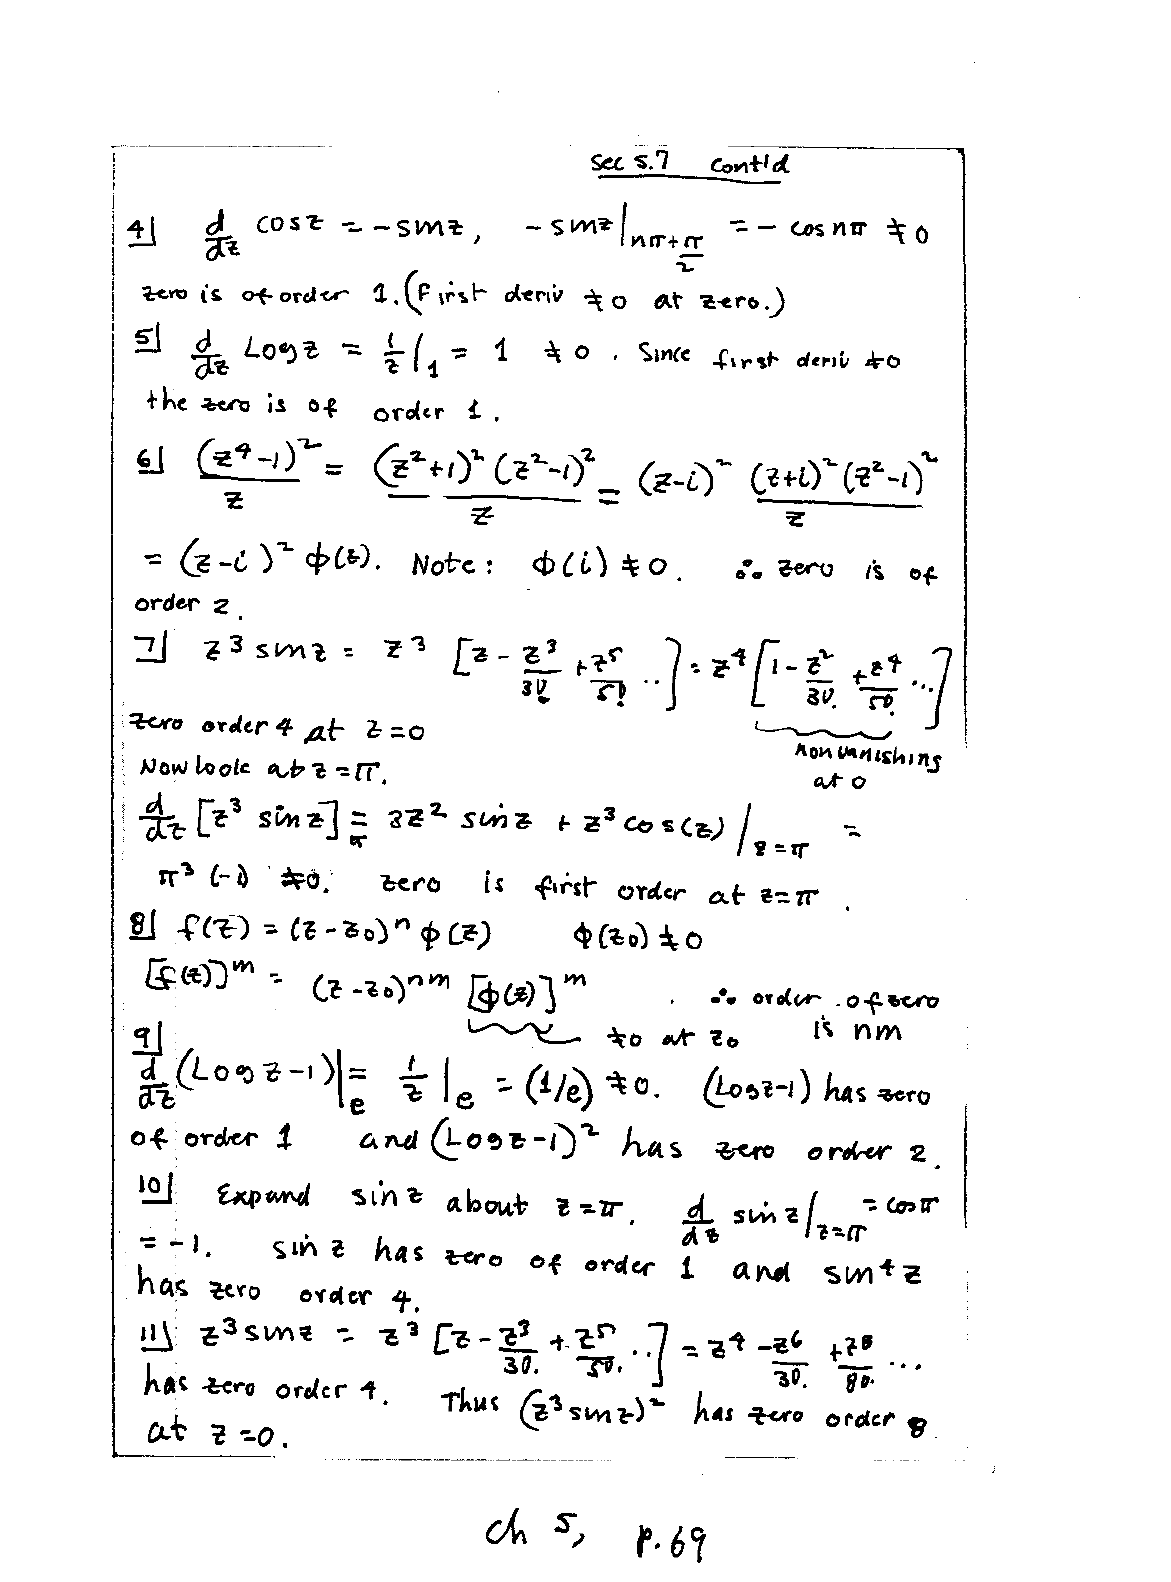 Sec 5.7 Cont'd
4] d/dz cos z = - sin z, - sin z |nπ+π/2 = - cos nπ ≠ 0
zero is of order 1. (First deriv ≠ 0 at zero.)
5] d/dz Log z = 1/z |1 = 1 ≠ 0. Since first deriv ≠ 0
the zero is of order 1.
6] (z⁴-1)²/z = (z²+1)² (z²-1)²/z = (z-i)² (z+i)² (z²-1)²/z
= (z-i)² φ(z). Note: φ(i) ≠ 0. ∴ zero is of
order 2.
7] z³ sin z = z³ [z - z³/3! + z⁵/5! ..] = z⁴ [1 - z²/3! + z⁴/5! ...]
zero order 4 at z=0
nonvanishing
at 0
Now look at z=π.
d/dz [z³ sin z] =π 3z² sin z + z³ cos(z) |z=π =
π³ (-1) ≠ 0. zero is first order at z=π.
8] f(z) = (z-z₀)ⁿ φ(z) φ(z₀) ≠ 0
[f(z)]ᵐ = (z-z₀)ⁿᵐ [φ(z)]ᵐ ∴ order of zero
≠0 at z₀ is nm
9]
d/dz (Log z-1)|e = 1/z |e = (1/e) ≠ 0. (Log z-1) has zero
of order 1 and (Log z-1)² has zero order 2.
10] Expand sin z about z=π. d/dz sin z |z=π = cos π
= -1. sin z has zero of order 1 and sin⁴ z
has zero order 4.
11] z³ sin z = z³ [z - z³/3! + z⁵/5! ..] = z⁴ - z⁶/3! + z⁸/8! ...
has zero order 4. Thus (z³ sin z)² has zero order 8
at z=0.
ch 5, p. 69